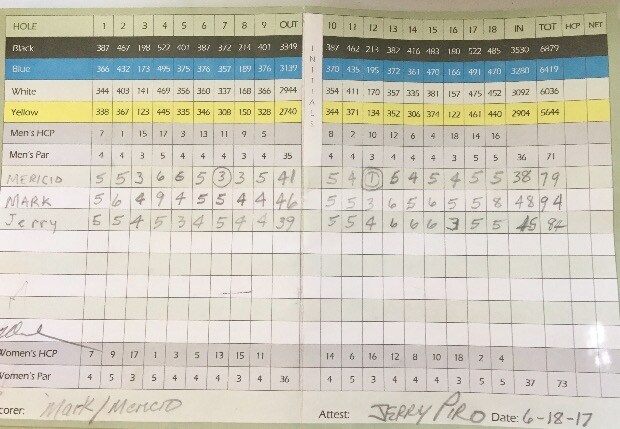 HOLE 1 2 3 4 5 6 7 8 9 OUT INITIALS 10 11 12 13 14 15 16 17 18 IN TOT HCP NET
Black 387 467 198 522 401 387 372 214 401 3349 387 462 213 382 416 483 180 522 485 3530 6879
Blue 366 432 173 495 375 376 357 189 376 3139 370 435 195 372 361 470 166 491 470 3280 6419
White 344 403 141 469 356 360 337 168 366 2944 354 411 170 357 335 381 157 475 452 3092 6036
Yellow 338 367 123 445 335 346 308 150 328 2740 344 371 134 352 306 374 122 461 440 2904 5644
Men's HCP 7 1 15 17 3 13 11 9 5 8 2 10 12 6 4 18 14 16
Men's Par 4 4 3 5 4 4 4 3 4 35 4 4 3 4 4 4 3 5 5 36 71
MERICIO 5 5 3 6 6 5 3 3 5 41 5 4 1 5 4 5 4 5 5 38 79
MARK 5 6 4 9 4 5 5 4 4 46 5 5 3 6 5 6 5 5 8 48 94
Jerry 5 5 4 5 3 4 5 4 4 39 5 5 4 6 6 6 3 5 5 45 84
Women's HCP 7 9 17 1 3 5 13 15 11 14 6 16 12 8 10 18 2 4
Women's Par 4 5 3 5 4 4 4 3 4 36 4 5 3 4 4 4 3 5 5 37 73
corer: Mark/Mericio Attest: JERRY PIRO Date: 6-18-17